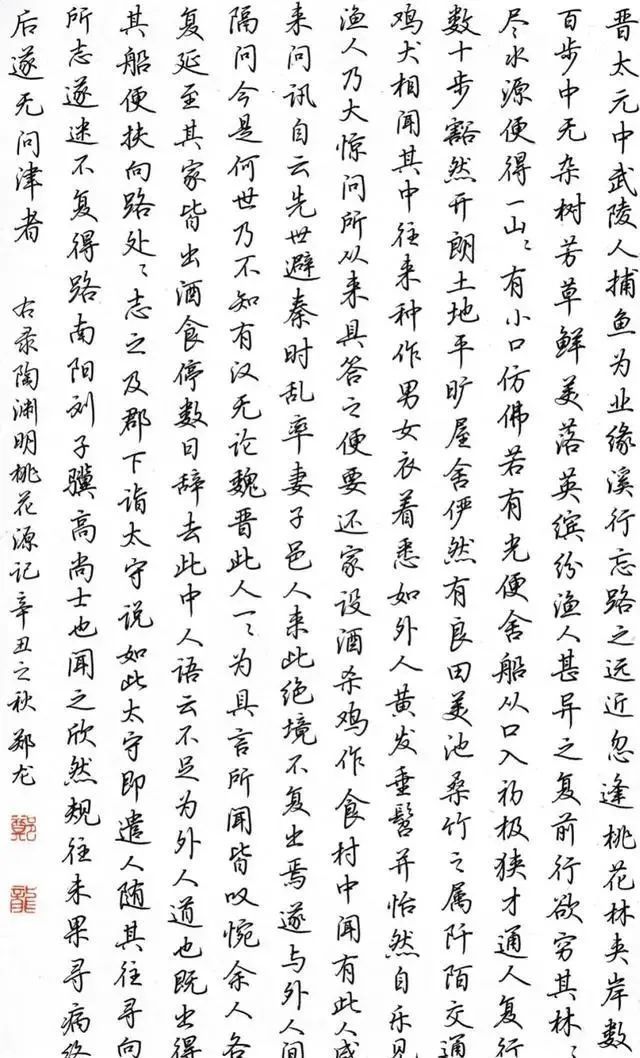 晋太元中武陵人捕鱼为业缘溪行忘路之远近忽逢桃花林夹岸数
百步中无杂树芳草鲜美落英缤纷渔人甚异之复前行欲穷其林〻
尽水源便得一山〻有小口仿佛若有光便舍船从口入初极狭才通人复行
数十步豁然开朗土地平旷屋舍俨然有良田美池桑竹之属阡陌交通
鸡犬相闻其中往来种作男女衣着悉如外人黄发垂髫并怡然自乐见
渔人乃大惊问所从来具答之便要还家设酒杀鸡作食村中闻有此人咸
来问讯自云先世避秦时乱率妻子邑人来此绝境不复出焉遂与外人间
隔问今是何世乃不知有汉无论魏晋此人一〻为具言所闻皆叹惋余人各
复延至其家皆出酒食停数日辞去此中人语云不足为外人道也既出得
其船便扶向路处〻志之及郡下诣太守说如此太守即遣人随其往寻向
所志遂迷不复得路南阳刘子骥高尚士也闻之欣然规往未果寻病终
后遂无问津者 右录陶渊明桃花源记辛丑之秋郑龙
鄭
龍